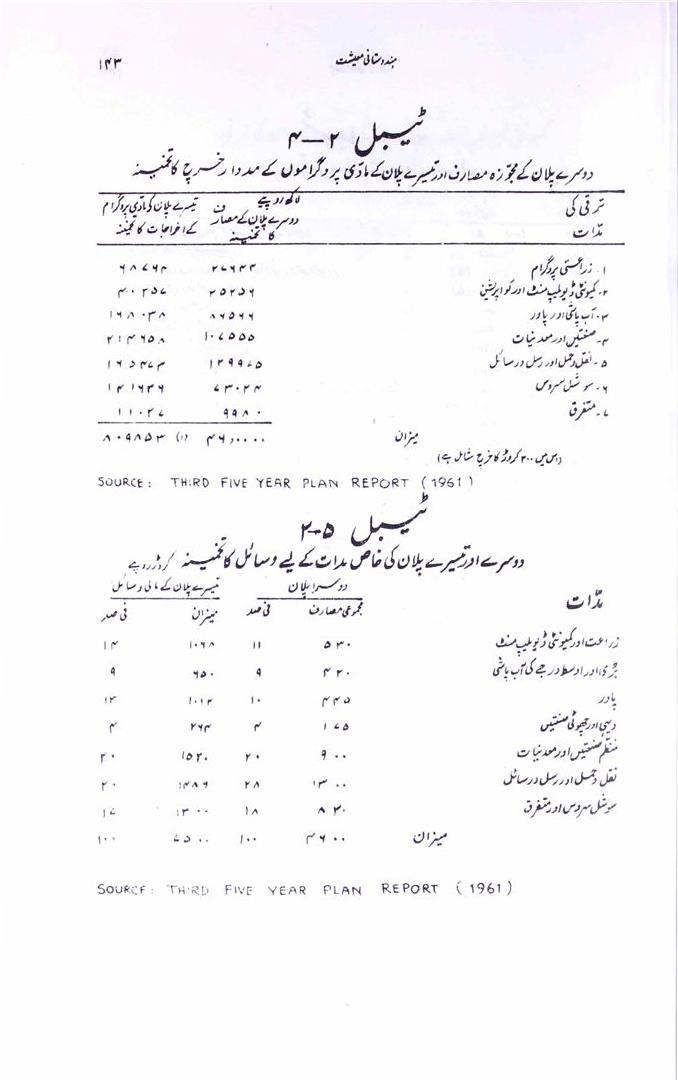 ہندوستانی معیشت ۱۴۳
ٹیبل ۲—۴
دوسرے پلان کے مجوزہ مصارف اور تیسرے پلان کے مادّی پروگراموں کے مددار خرچ کا تخمینہ
لاکھ روپیے
ترقی کی مدّات دوسرے پلان کے مصارف کا تخمینہ تیسرے پلان کی مادّی پروگرام کے اخراجات کا تخمینہ
۱۔ زراعتی پروگرام ۲۷۶۴۴ ۶۸۷۶۴
۲۔ کمیونٹی ڈیولپمنٹ اور کواپریشن ۲۵۲۵۶ ۴۰۲۵۷
۳۔ آب پاشی اور پاور ۸۶۵۶۶ ۱۶۸۰۳۸
۴۔ صنعتیں اور معدنیات ۱۰۷۵۵۵ ۲۱۴۶۵۸
۵۔ نقل و حمل اور رسل و رسائل ۱۲۹۹۷۵ ۱۶۵۴۷۳
۶۔ سوشل سروس ۷۳۰۲۴ ۱۴۱۶۳۶
۷۔ متفرق ۹۹۸۰ ۱۱۰۲۷
میزان ۴۶۰۰۰۰ (۱) ۸۰۹۸۵۳
(اس میں ۲۰۰ کروڑ کا خرچ شامل ہے)
SOURCE: THIRD FIVE YEAR PLAN REPORT (1961)
ٹیبل ۵-۲
دوسرے اور تیسرے پلان کی خاص مدات کے لیے وسائل کا تخمینہ کروڑ روپیے
مدّات دوسرا پلان تیسرے پلان کے مالی وسائل
مجموعی مصارف فی صد میزان فی صد
زراعت اور کمیونٹی ڈیولپمنٹ ۵۳۰ ۱۱ ۱۰۶۸ ۱۴
بڑی اور اوسط درجے کی آب پاشی ۴۲۰ ۹ ۶۵۰ ۹
پاور ۴۴۵ ۱۰ ۱۰۱۲ ۱۳
دیہی اور چھوٹی صنعتیں ۱۷۵ ۴ ۲۶۴ ۴
منظم صنعتیں اور معدنیات ۹۰۰ ۲۰ ۱۵۲۰ ۲۰
نقل و حمل اور رسل و رسائل ۱۳۰۰ ۲۸ ۱۴۸۶ ۲۰
سوشل سروس اور متفرق ۸۳۰ ۱۸ ۱۳۰۰ ۱۷
میزان ۴۶۰۰ ۱۰۰ ۷۵۰۰ ۱۰۰
SOURCE: THIRD FIVE YEAR PLAN REPORT (1961)